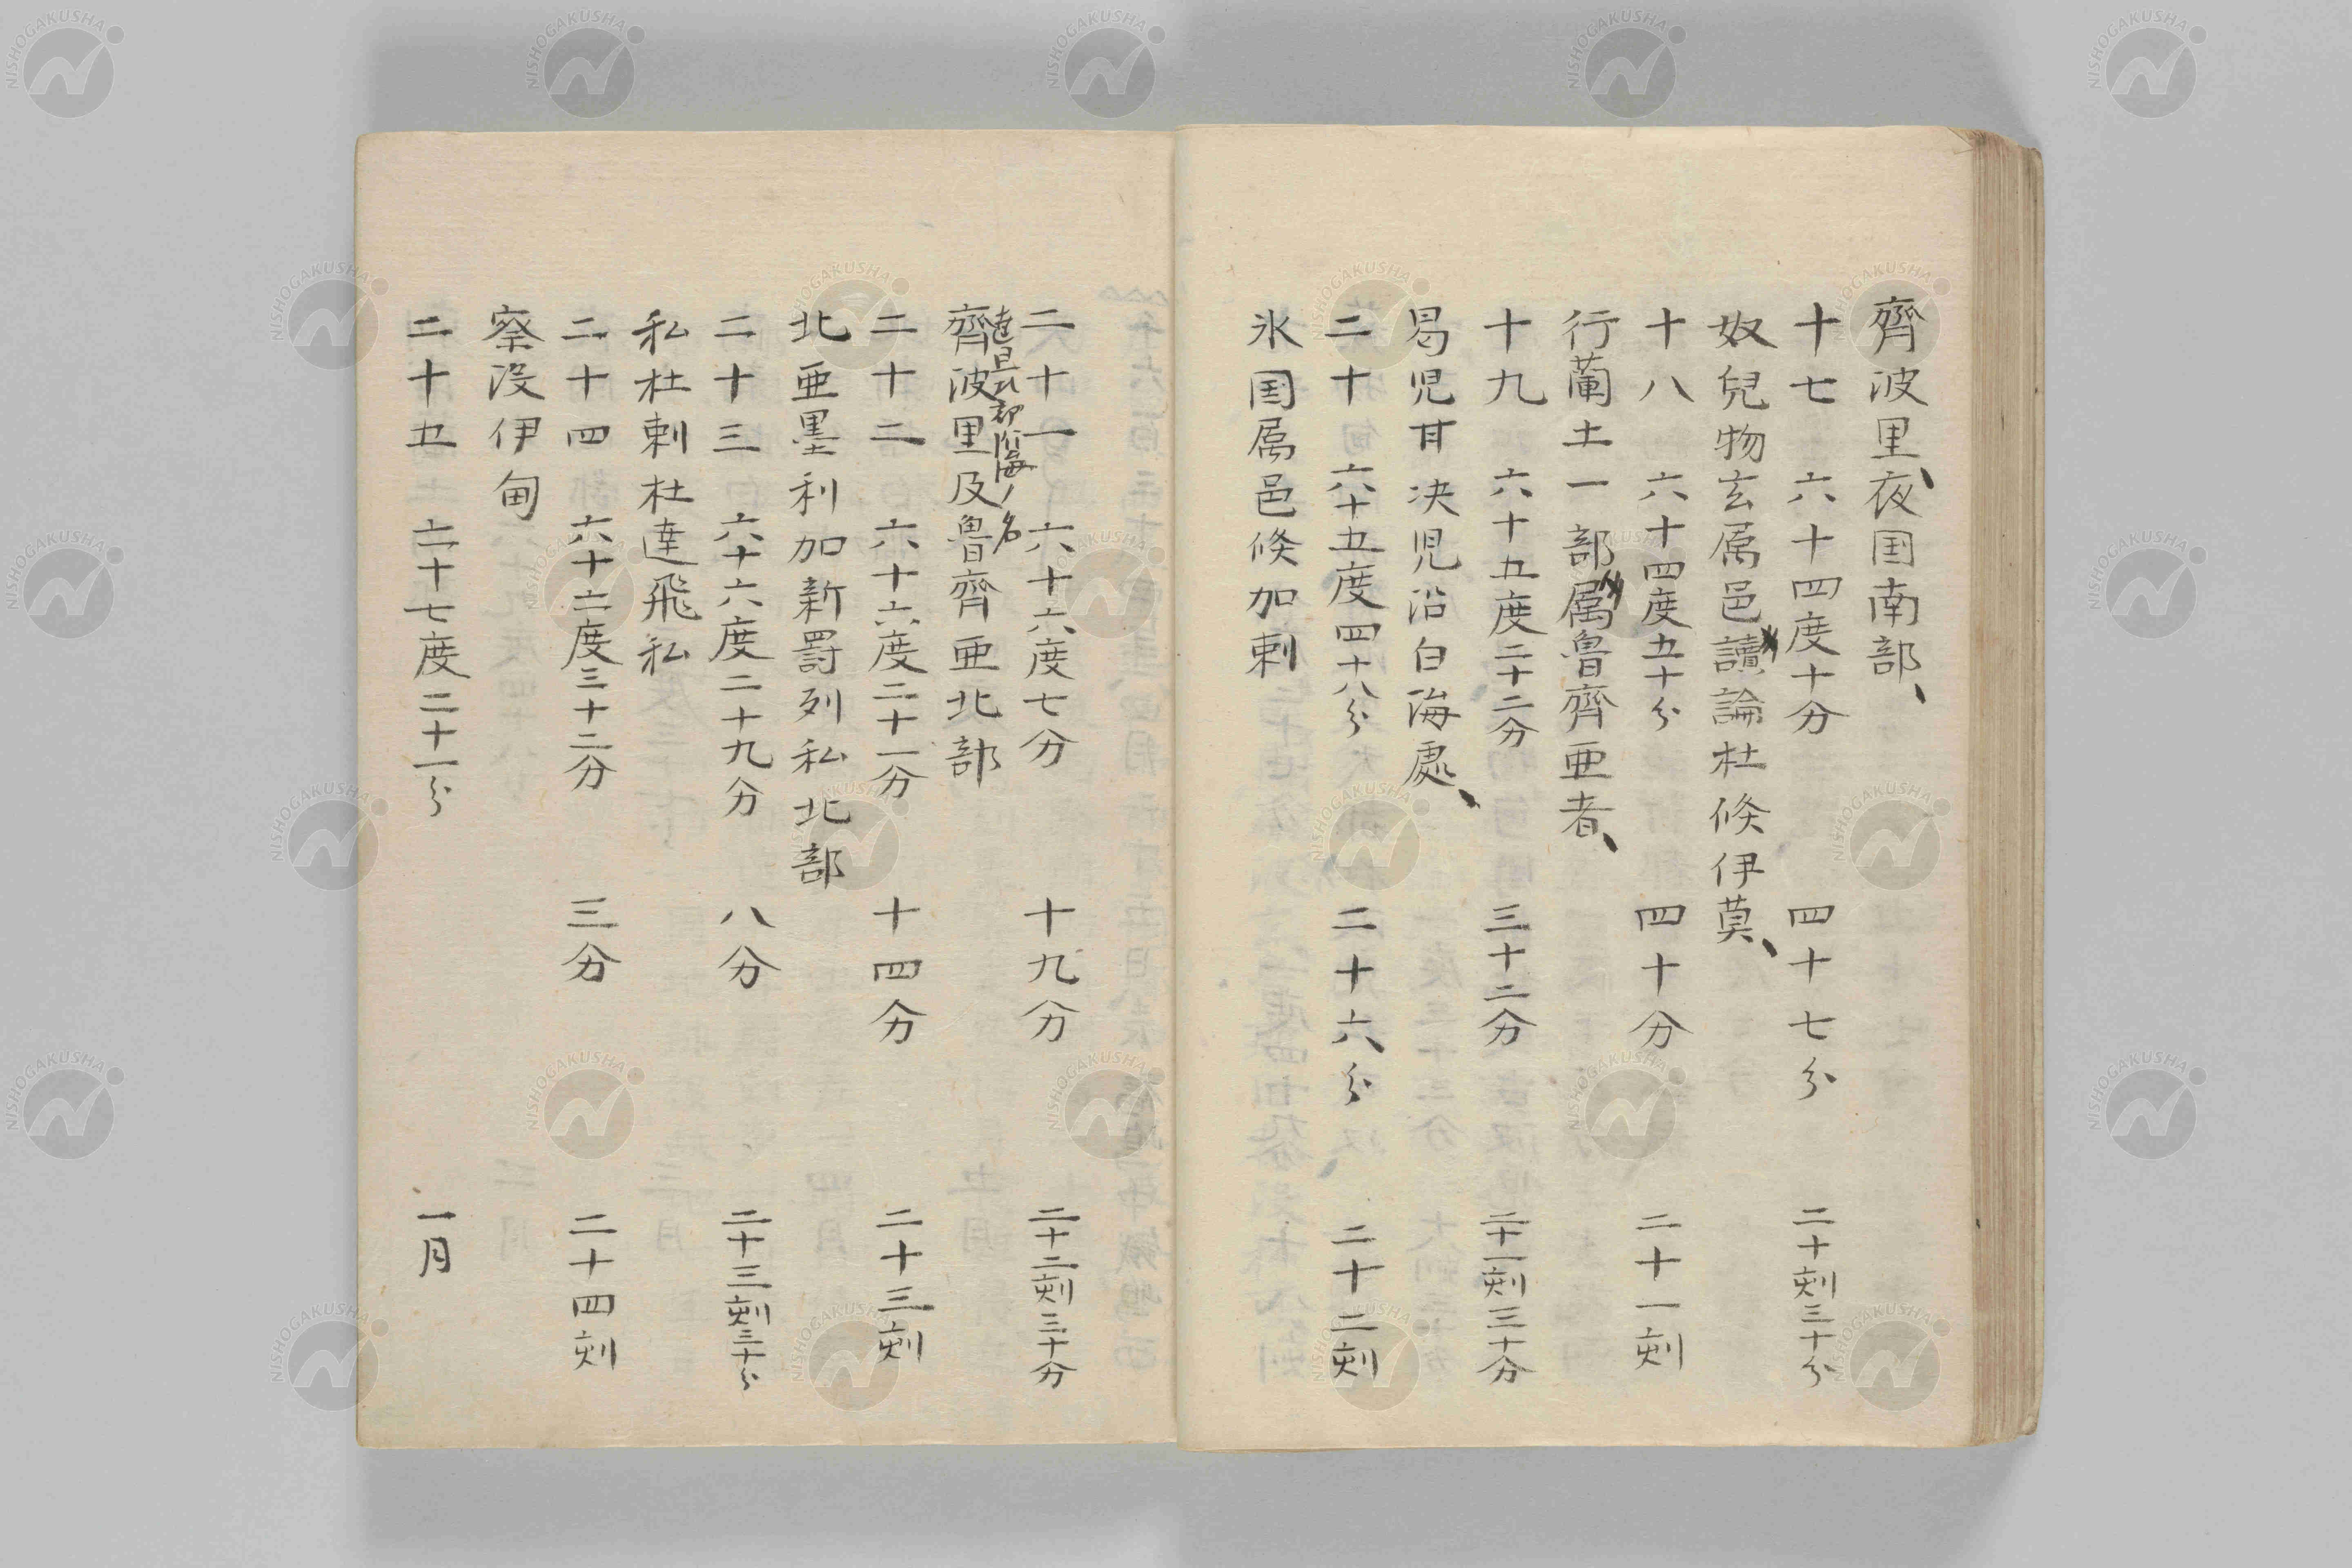 齊波里、夜国南部、
十七 六十四度十分 四十七分 二十刻三十分
奴兒物玄属邑讀論杜倏伊莫、
十八 六十四度五十分 四十分 二十一刻
行蘭土一部属魯齊亜者、
十九 六十五度二十二分 三十二分 二十一刻三十分
昜児甘决児沿白海處、
二十 六十五度四十八分 二十六分 二十二刻
氷国属邑倏加剌
二十一 六十六度七分 十九分 二十二刻三十分
齊波里及魯齊亜北部
二十二 六十六度二十一分 十四分 二十三刻
北亜墨利加新罸列私北部
二十三 六十六度二十九分 八分 二十三刻三十分
私杜剌杜達飛私
二十四 六十六度三十二分 三分 二十四刻
察没伊甸
二十五 六十七度二十一分 一月